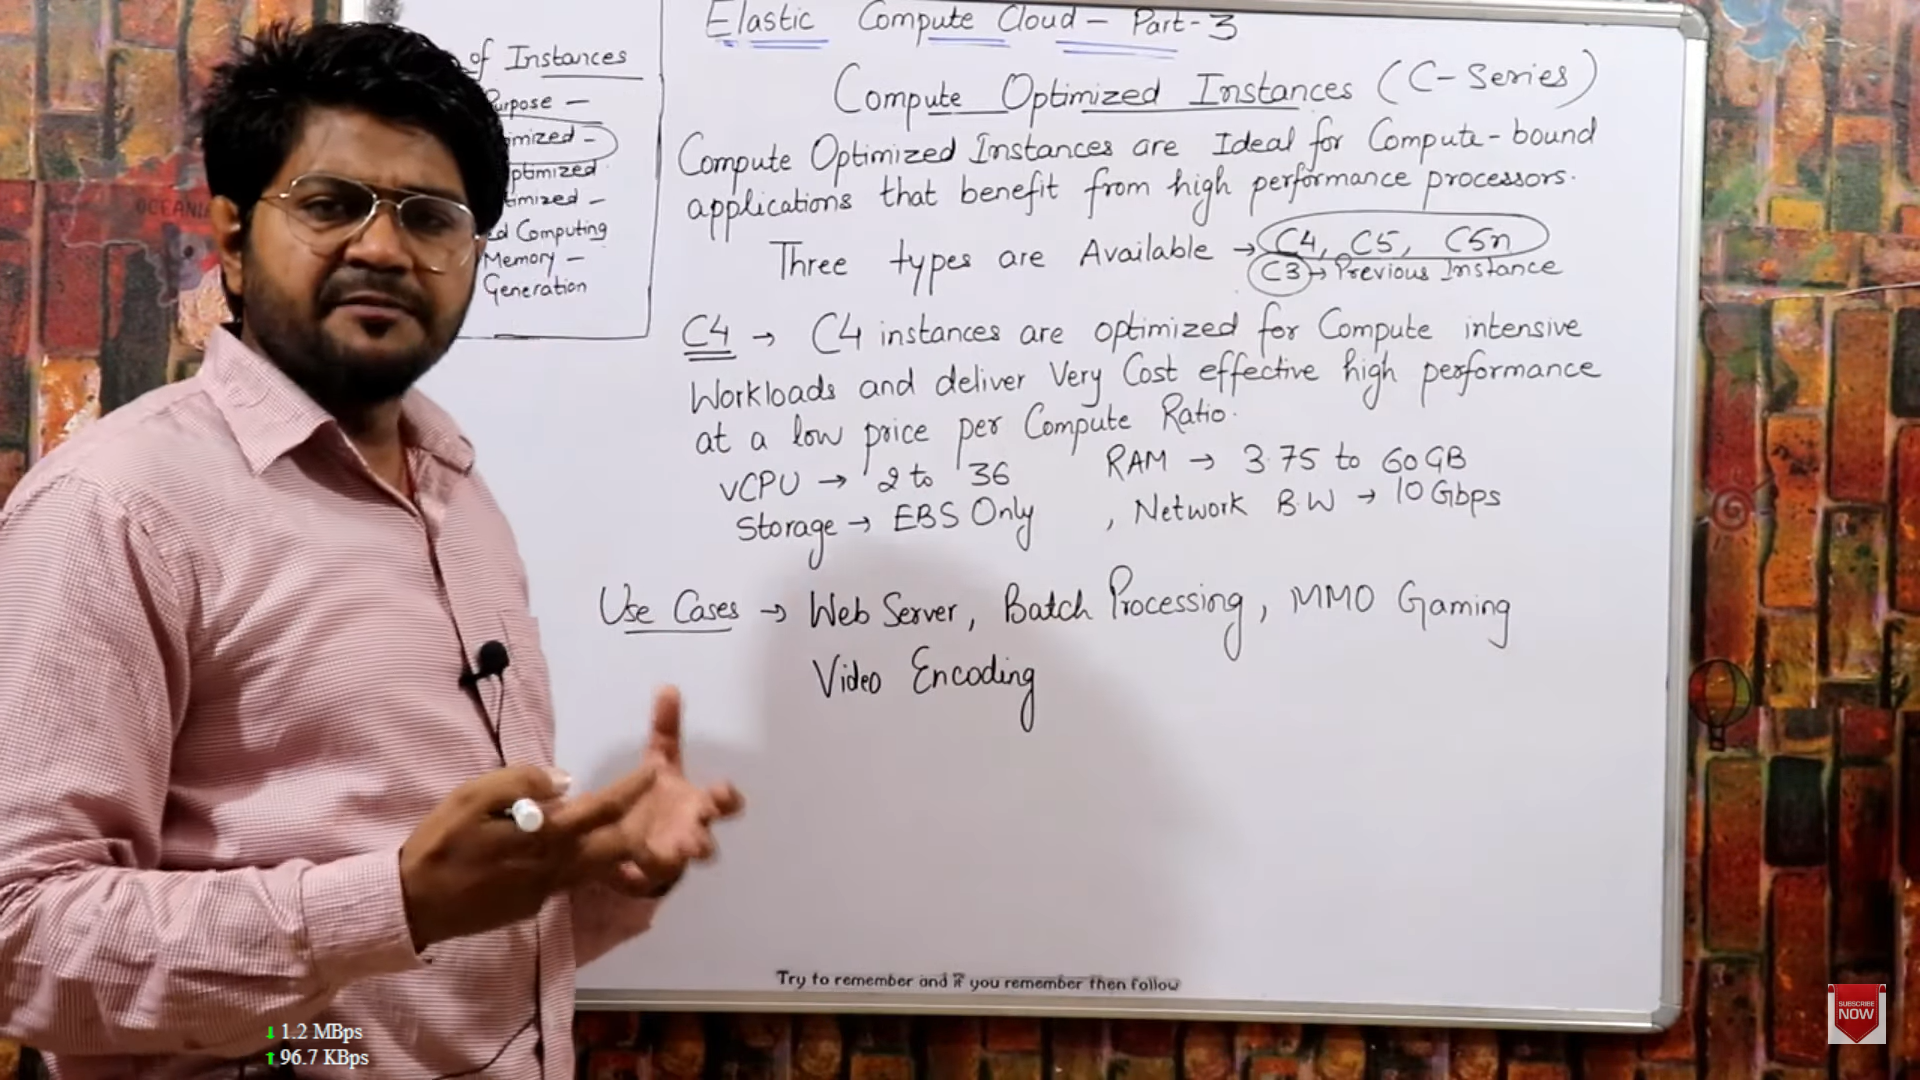 Elastic Compute Cloud - Part-3
of Instances
Purpose -
imized -
ptimized
timized -
ed Computing
Memory -
Generation
Compute Optimized Instances (C-Series)
Compute Optimized Instances are Ideal for Compute-bound
applications that benefit from high performance processors.
Three types are Available → C4, C5, C5n
C3 → Previous Instance
C4 → C4 instances are optimized for Compute intensive
Workloads and deliver Very Cost effective high performance
at a low price per Compute Ratio.
vCPU → 2 to 36 RAM → 3.75 to 60 GB
Storage → EBS Only , Network B.W → 10 Gbps
Use Cases → Web Server, Batch Processing, MMO Gaming
Video Encoding
Try to remember and if you remember then follow
OCEANIA
SUBSCRIBE
NOW
↓ 1.2 MBps
↑ 96.7 KBps